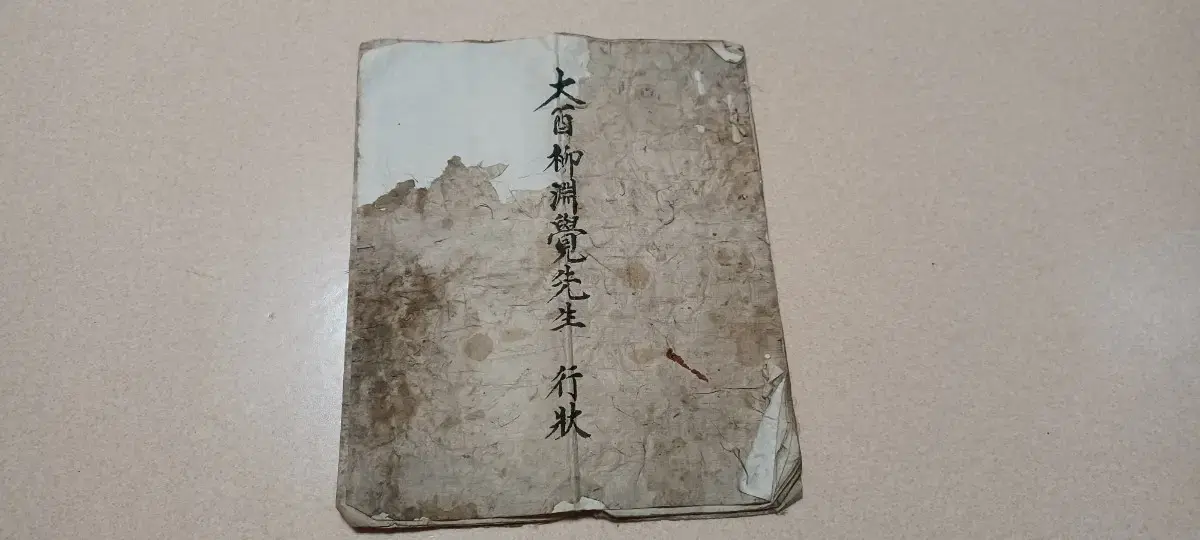 大酉柳淵覺先生 行狀